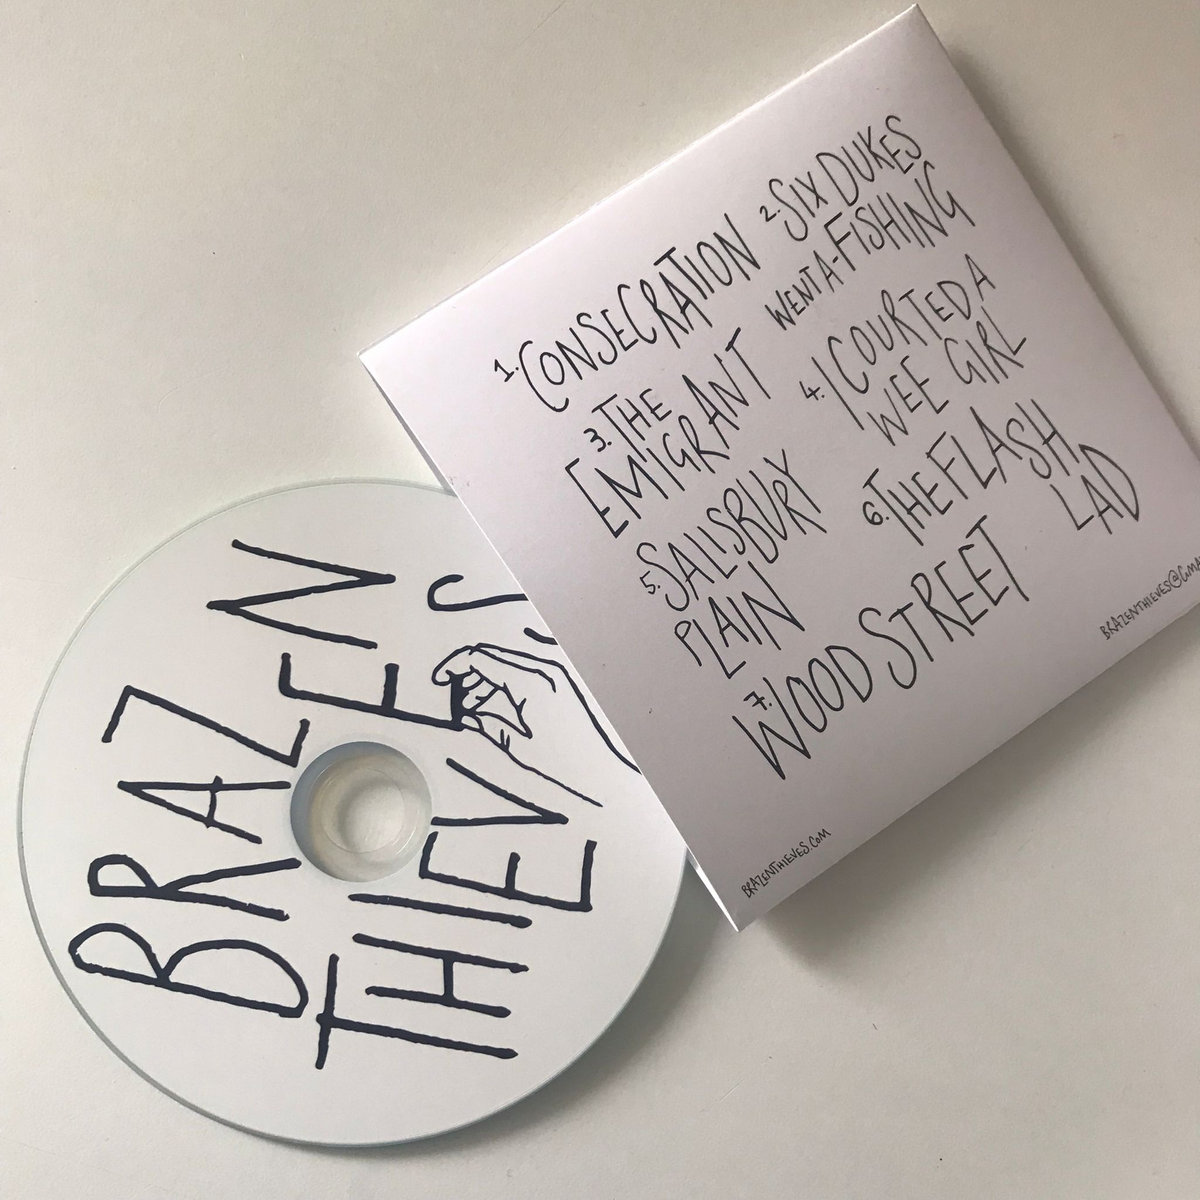 BRAZEN
THIEVES
1. CONSECRATION
2. SIX DUKES
WENT A-FISHING
3. THE
EMIGRANT
4. I COURTED A
WEE GIRL
5. SALISBURY
PLAIN
6. THE FLASH
LAD
7. WOOD STREET
BRAZENTHIEVES.COM
BRAZENTHIEVES@GMA